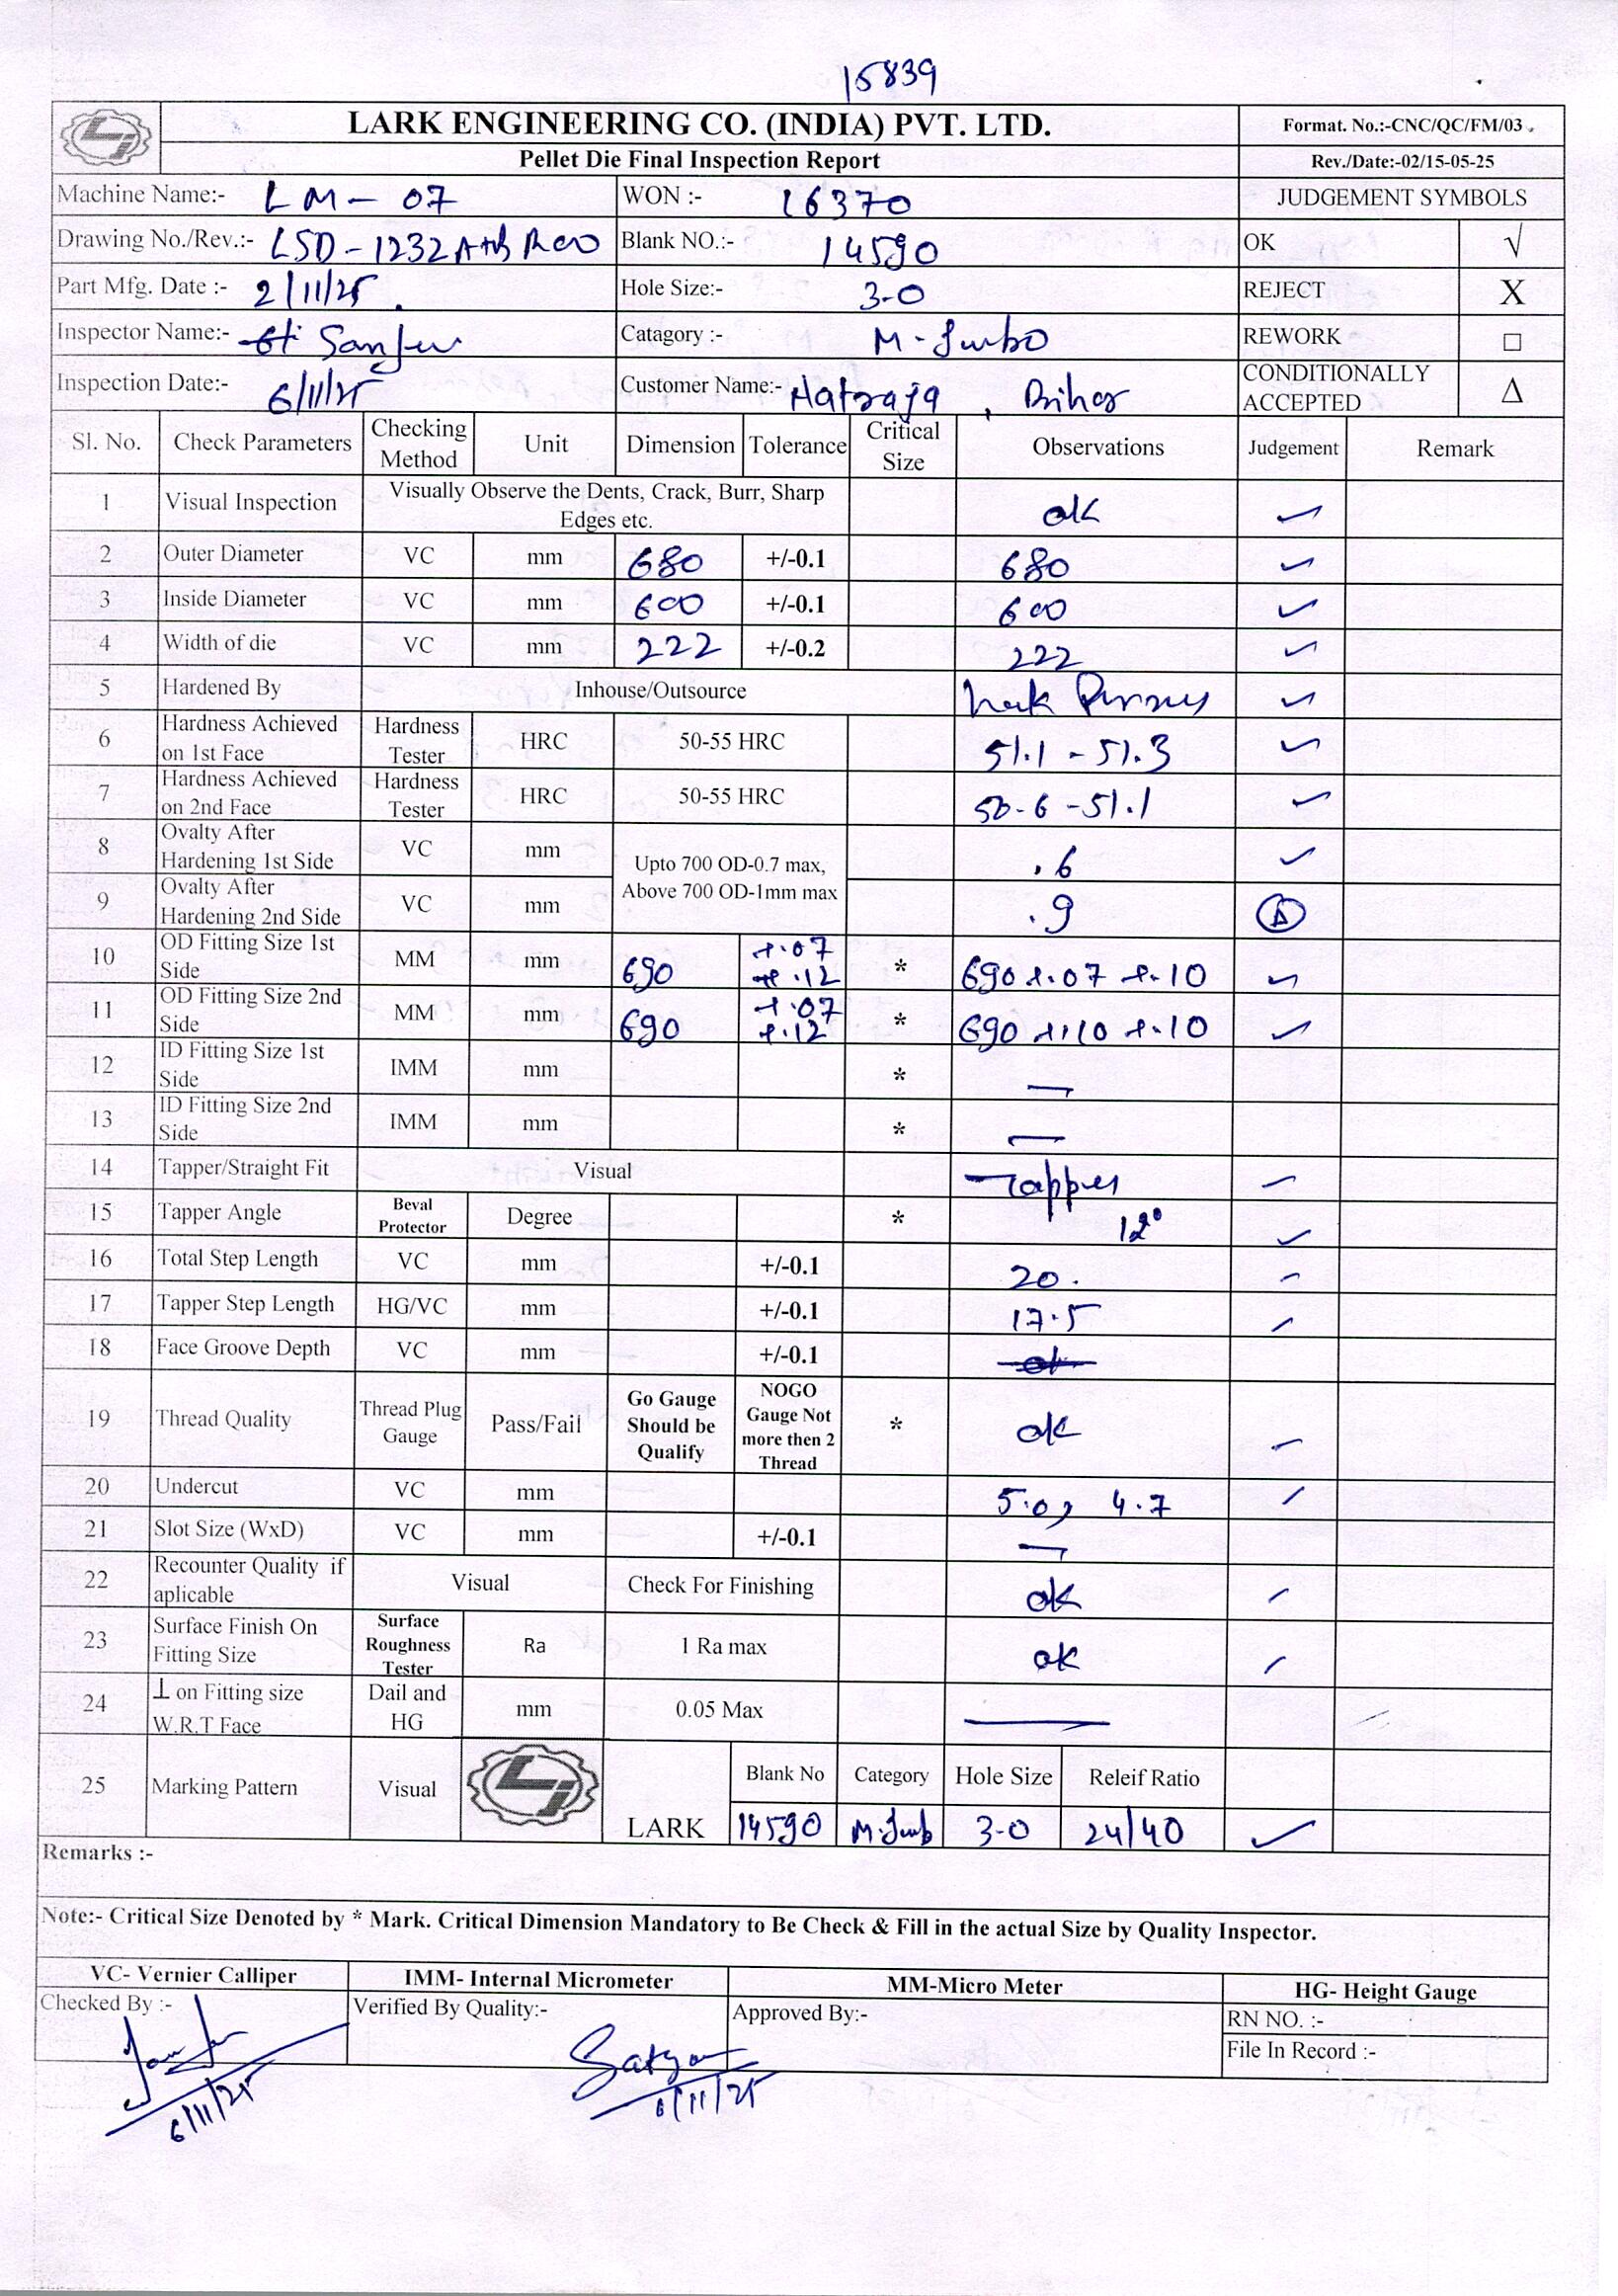 15839
LARK ENGINEERING CO. (INDIA) PVT. LTD.
Format. No.:-CNC/QC/FM/03
Pellet Die Final Inspection Report
Rev./Date:-02/15-05-25
Machine Name:- LM-07 WON :- 16370 JUDGEMENT SYMBOLS
Drawing No./Rev.:- LSD-1232 Blank NO.:- 14590 OK √
Part Mfg. Date :- 2/11/25 Hole Size:- 3-0 REJECT X
Inspector Name:- Sanjeev Catagory :- M-Jumbo REWORK □
Inspection Date:- 6/11/25 Customer Name:- Natraja, Bihar CONDITIONALLY ACCEPTED Δ
Sl. No. Check Parameters Checking Method Unit Dimension Tolerance Critical Size Observations Judgement Remark
1 Visual Inspection Visually Observe the Dents, Crack, Burr, Sharp Edges etc. ok ✓
2 Outer Diameter VC mm 680 +/-0.1 680 ✓
3 Inside Diameter VC mm 600 +/-0.1 600 ✓
4 Width of die VC mm 222 +/-0.2 222 ✓
5 Hardened By Inhouse/Outsource ✓
6 Hardness Achieved on 1st Face Hardness Tester HRC 50-55 HRC 51.1 - 51.3 ✓
7 Hardness Achieved on 2nd Face Hardness Tester HRC 50-55 HRC 50-6 - 51.1 ✓
8 Ovalty After Hardening 1st Side VC mm Upto 700 OD-0.7 max, Above 700 OD-1mm max .6 ✓
9 Ovalty After Hardening 2nd Side VC mm .9 Δ
10 OD Fitting Size 1st Side MM mm 690 +.07 +.12 * 690 +.07 +.10 ✓
11 OD Fitting Size 2nd Side MM mm 690 +.07 +.12 * 690 +.10 +.10 ✓
12 ID Fitting Size 1st Side IMM mm * —
13 ID Fitting Size 2nd Side IMM mm * —
14 Tapper/Straight Fit Visual Tapper ✓
15 Tapper Angle Beval Protector Degree * 12° ✓
16 Total Step Length VC mm +/-0.1 20. ✓
17 Tapper Step Length HG/VC mm +/-0.1 17.5 ✓
18 Face Groove Depth VC mm +/-0.1 ok
19 Thread Quality Thread Plug Gauge Pass/Fail Go Gauge Should be Qualify NOGO Gauge Not more then 2 Thread * ok ✓
20 Undercut VC mm 5.0, 4.7 ✓
21 Slot Size (WxD) VC mm +/-0.1 —
22 Recounter Quality if aplicable Visual Check For Finishing ok ✓
23 Surface Finish On Fitting Size Surface Roughness Tester Ra 1 Ra max ok ✓
24 ⊥ on Fitting size W.R.T Face Dail and HG mm 0.05 Max —
25 Marking Pattern Visual LARK Blank No Category Hole Size Releif Ratio
14590 M-Jumb 3-0 24/40 ✓
Remarks :-
Note:- Critical Size Denoted by * Mark. Critical Dimension Mandatory to Be Check & Fill in the actual Size by Quality Inspector.
VC- Vernier Calliper IMM- Internal Micrometer MM-Micro Meter HG- Height Gauge
Checked By :- Verified By Quality:- Approved By:- RN NO. :-
File In Record :-
Satyam
6/11/25 6/11/25